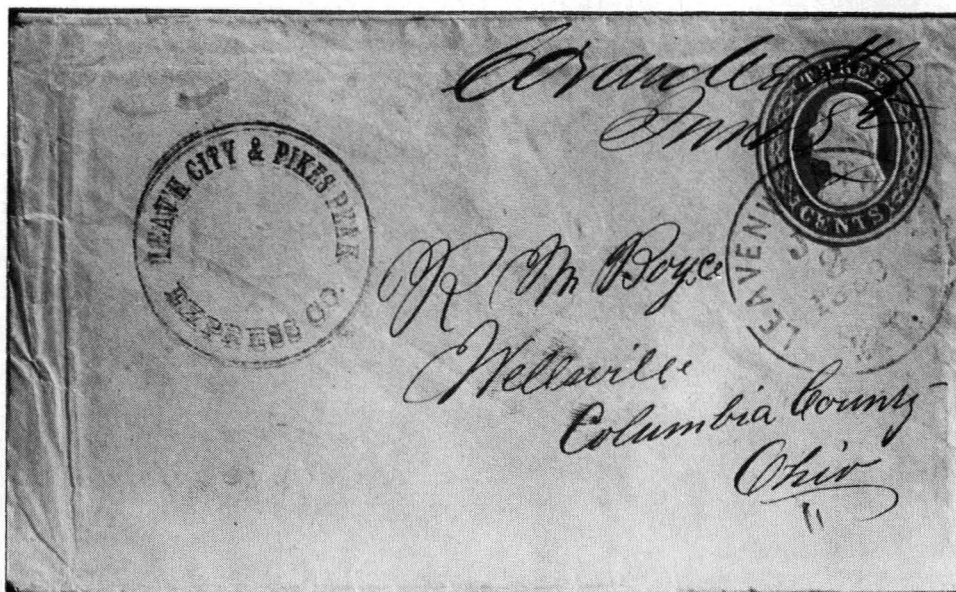 LEAV'H CITY & PIKES PEAK
EXPRESS CO.
THREE
CENTS
LEAVEN
R M Boyce
Wellsville
Columbia County
Ohio